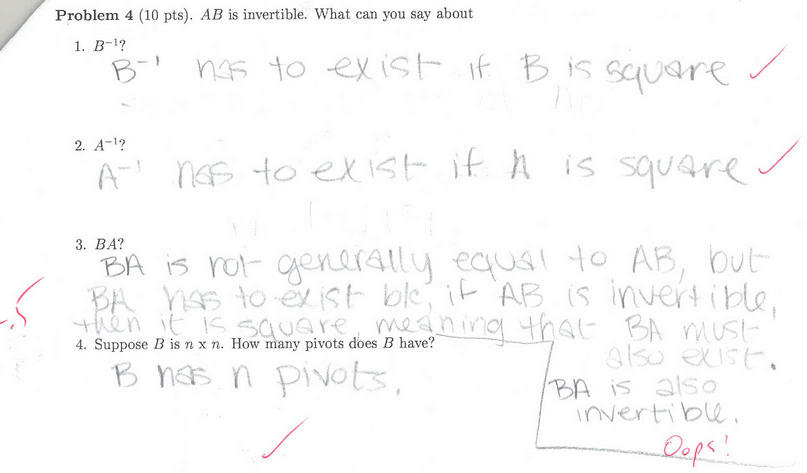 Problem 4 (10 pts). AB is invertible. What can you say about
1. B⁻¹?
B⁻¹ has to exist if B is square
2. A⁻¹?
A⁻¹ has to exist if A is square
3. BA?
BA is not generally equal to AB, but
BA has to exist b/c, if AB is invertible,
then it is square, meaning that BA must
also exist.
BA is also
invertible.
Oops!
-.5
4. Suppose B is n x n. How many pivots does B have?
B has n pivots.